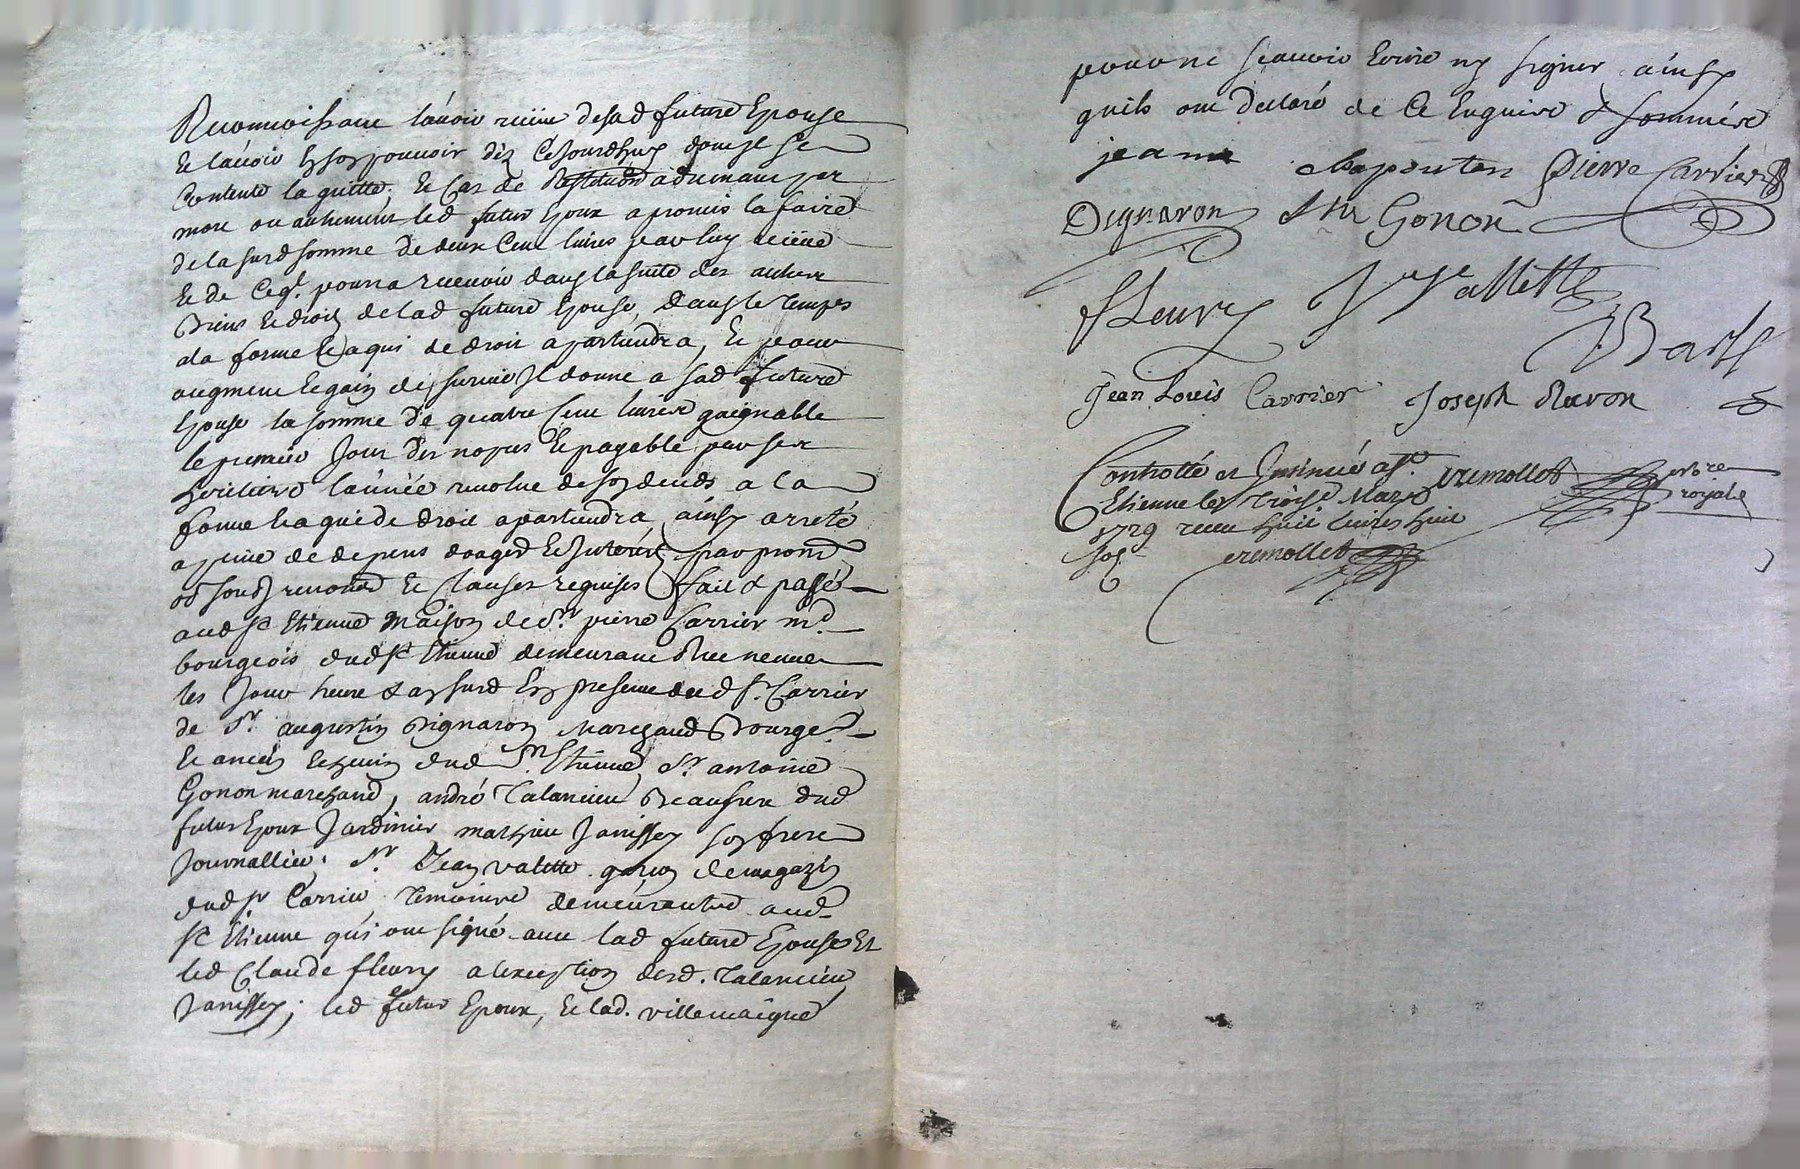 Reconnoissance l'auoir reçüe de sad future Epouse
et l'auoir En son pouuoir déz Ce Jourdhuy dont Il se
Contente la quitte. Et Cas de Restitution aduenant par
mort ou autrement led futur Epoux a promis la faire
de la susd somme de deux Cent liures par luy reçüe
Et de Ce ql. pourra receuoir dans la suitte des autres
Biens Et droits de lad future Epouse, dans le temps
a la forme Et a qui de droit apartiendra, Et pour
augment Et gain de suruie Il donne a sad future
Epouse la somme de quatre Cent liures gaignable
le premier Jour des nopces Et payable par ses
heritiers l'année reuolue de son deceds a la
forme Et a qui de droit apartiendra, ainsy arreté
a peine de depens domages Et Interets par prom
ob soud renonc Et Clauses requises fait & passé
aud st Etienne Maison de Sr. pierre Carrier md.
bourgeois dud st Etienne demeurant Rue neuue
les Jour heure & an susd En presence dud sr. Carrier
de Sr. augustin Dignaron Marchand Bourgs.
Et ancien Echeuin dud St. Etienne, Sr. antoine
Gonon marchand, andré Talancieu Beaufrere dud
futur Epoux Jardinier mathieu Janissey son frere
Journallier, Sr. Jean valette garçon de magazin
dud sr Carrier temoins demeurants aud
st Etienne qui ont signé auec lad future Epouse Et
led Claude fleury a l'exception desd. Talancieu
Janissey; led futur Epoux, Et lad. villemaigne
pour ne sçauoir Ecrire ny signer ainsy
quils ont declaré de Ce Enquis & sommés
jeanne Chapouton Pierre Carrier
Dignaron Gonon
fleury J Vallette
Bast
Jean Louis Carrier Joseph Rauon
Controllé et Insinué a st. cremollet
Etienne le Troise Mars royal
1729 receu huit liures huit
sols cremollet